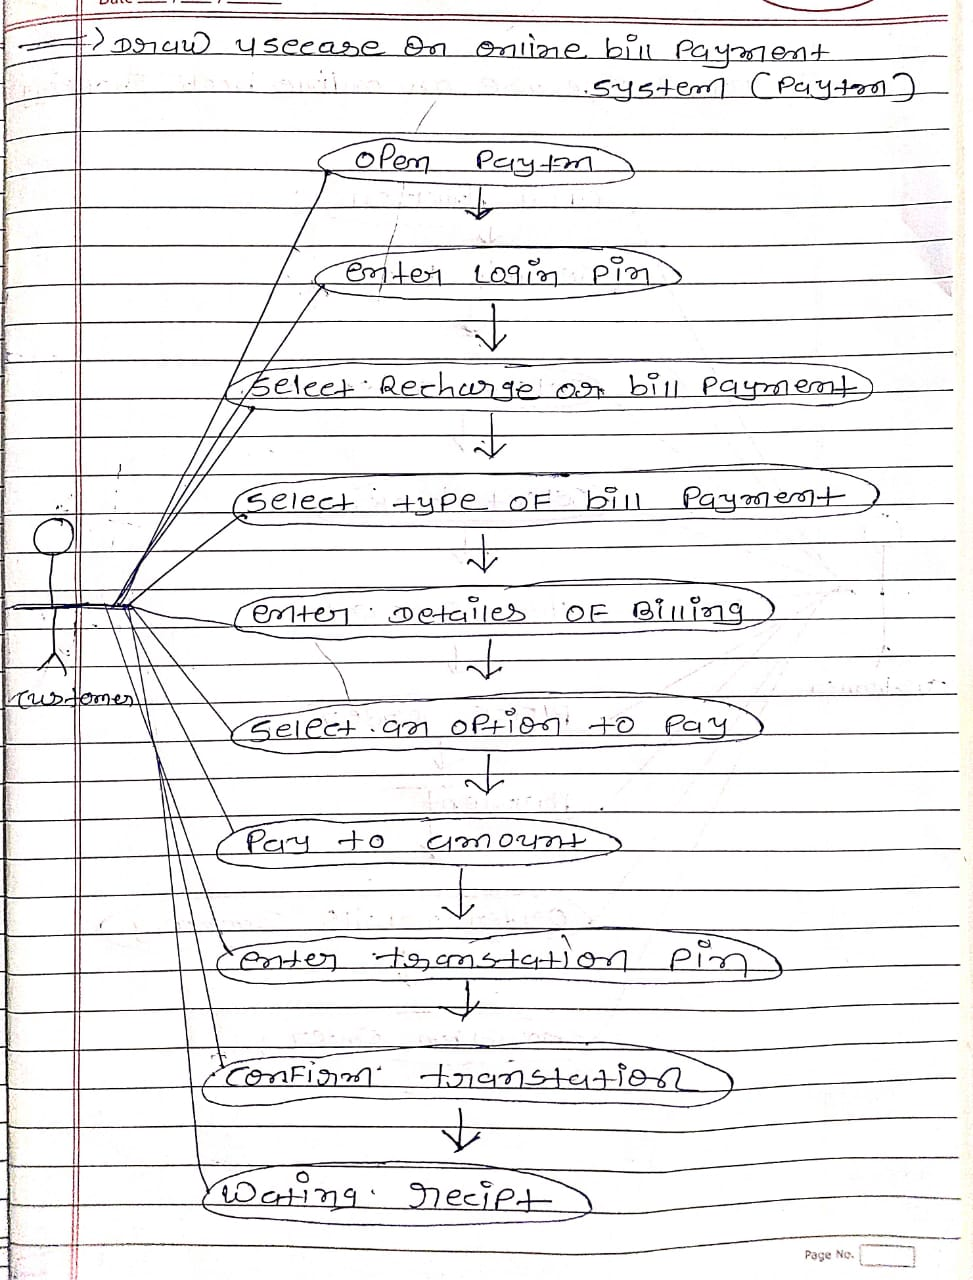 => Draw usecase on online bill payment
system (Paytm)
open Paytm
enter Login pin
Select Recharge or bill payment
Select type OF bill Payment
enter Detailes OF Billing
Customer
Select an option to pay
Pay to amount
enter transtation pin
Confirm transtation
Wating recipt
Page No.